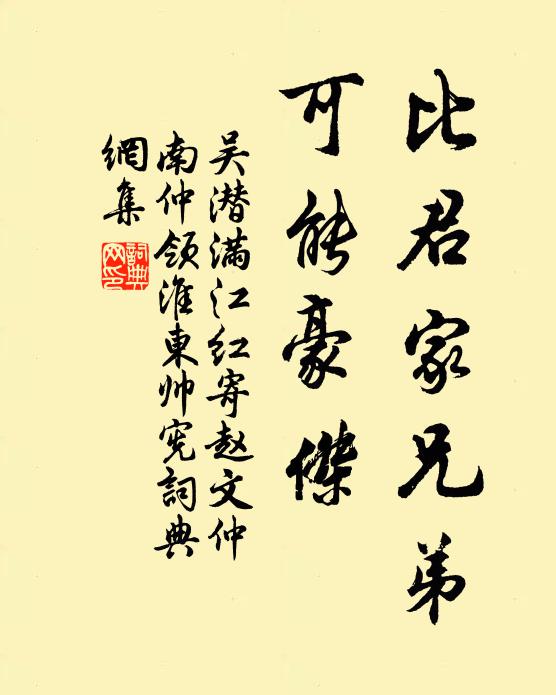 比君家兄弟
可能豪傑
吴潜满江红寄赵文仲
南仲领淮東帅宪詞典
網集
詞典
网印